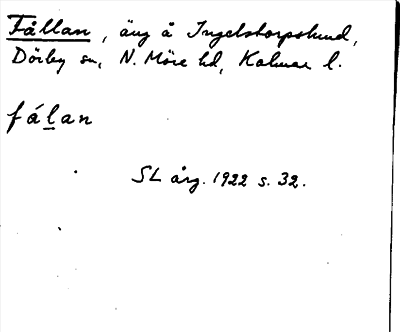 Fållan, äng å Ingelstorpslund,
Dörby sn, N. Möre hd, Kalmar l.
fálan
SL årg. 1922 s. 32.